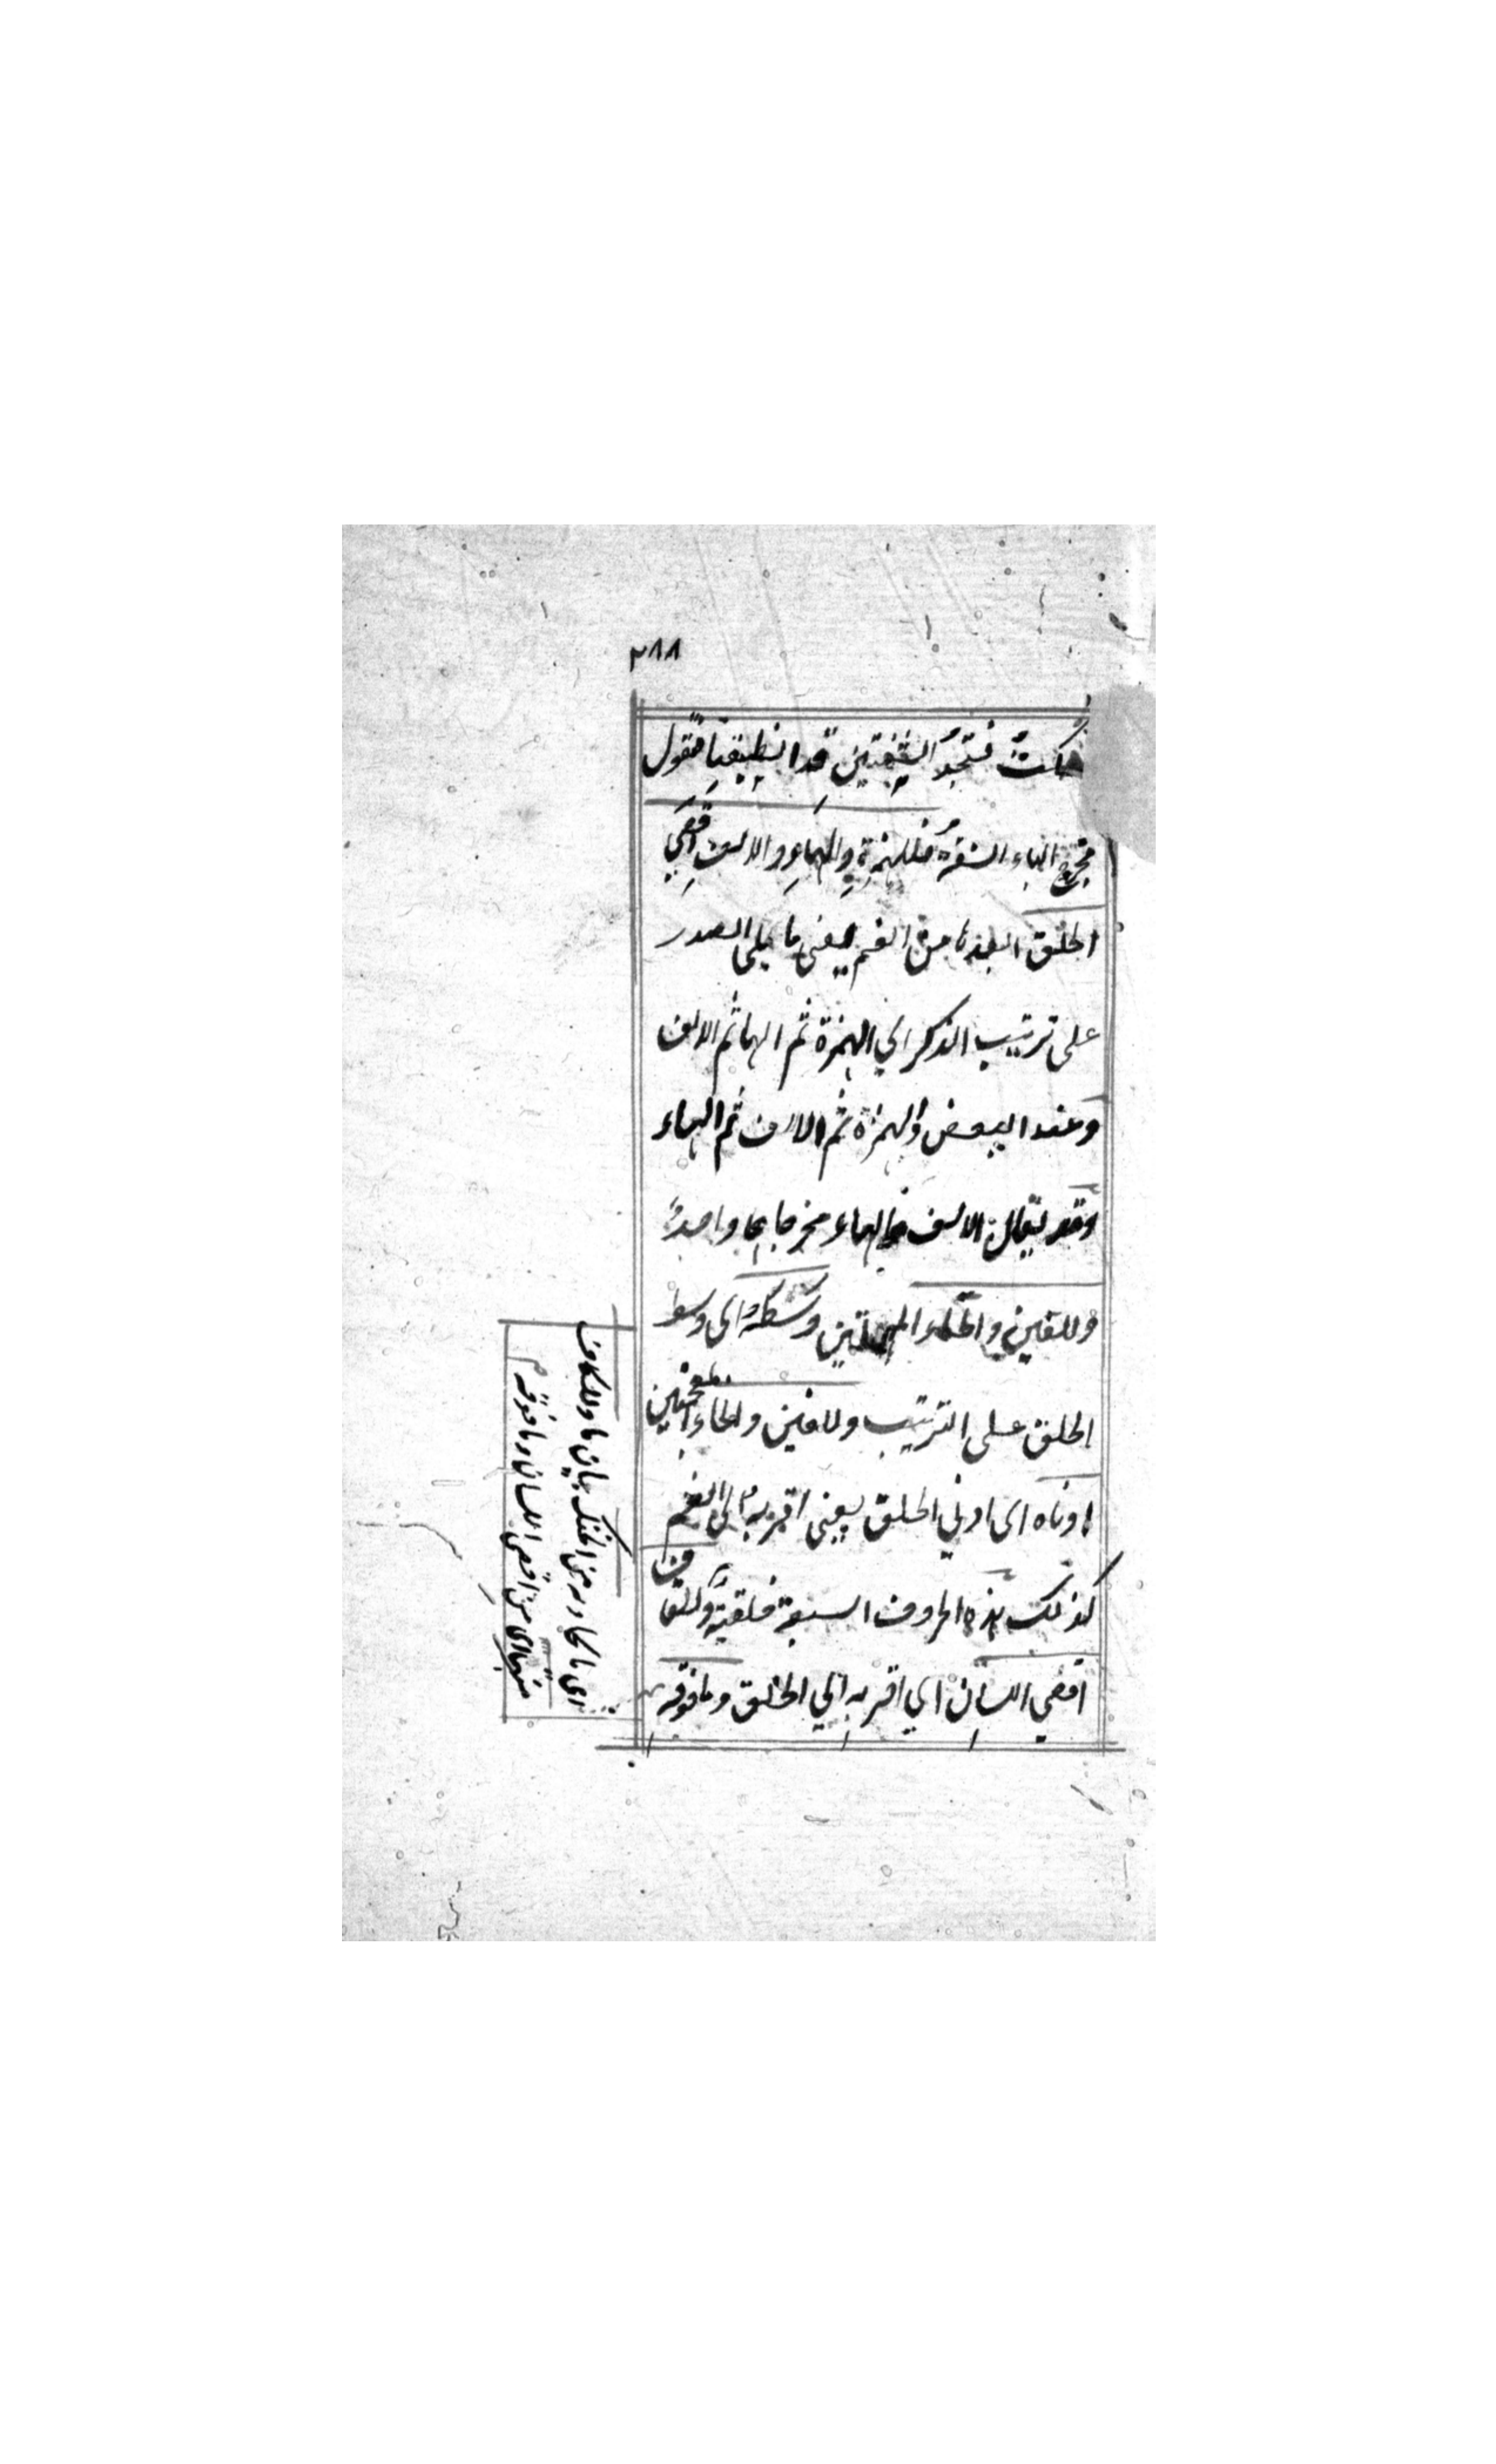 ٢٨٨
فتجد الشفتين قد انطبقتا فنقول
مخرج الباء الشفة فللهمزة والهاء والالف اقصى
الحلق ابعدها من الفم يعنى ما يلى الصدر
على ترتيب الذكر اي الهمزة ثم الها ثم الالف
وعند البعض الهمزة ثم الالف ثم الهاء
وقد يقال الالف والهاء مخرجاهما واحد
وللعين والحاء المهملتين وسطه اى وسط
الحلق على الترتيب وللغين والخاء المعجمتين
ادناه اى ادني الحلق يعنى اقربه الى الفم
كذلك هذه الحروف السبعة حلقية وللقاف
اقصي اللسان اي اقربه الي الحلق وما فوقه
اى ما يحاذيه من الحنك بيان ما وللكاف
منهما اى من اقصى اللسان وما فوقه